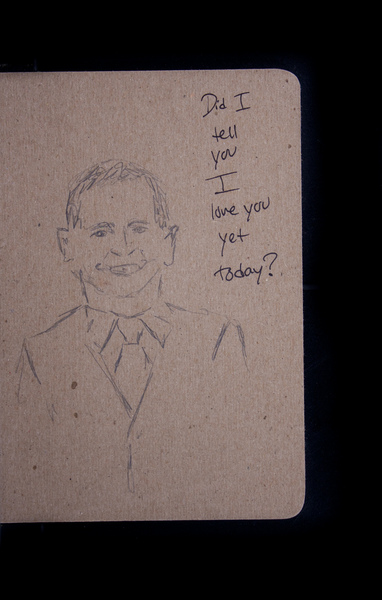 Did I
tell
you
I
love you
yet
today?